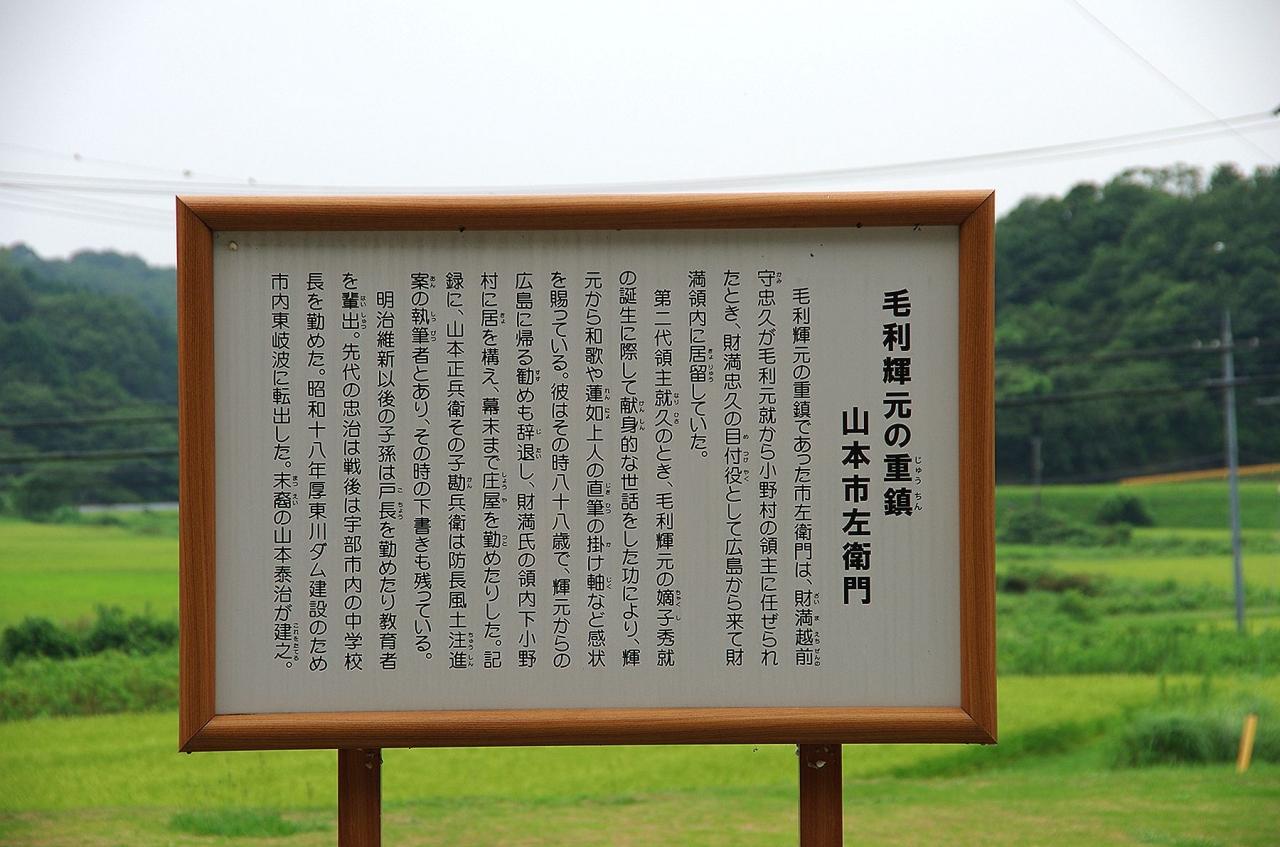 毛利輝元の重鎮
山本市左衛門
毛利輝元の重鎮であった市左衛門は、財満越前
守忠久が毛利元就から小野村の領主に任ぜられ
たとき、財満忠久の目付役として広島から来て財
満領内に居留していた。
第二代領主就久のとき、毛利輝元の嫡子秀就
の誕生に際して献身的な世話をした功により、輝
元から和歌や蓮如上人の直筆の掛け軸など感状
を賜っている。彼はその時八十八歳で、輝元からの
広島に帰る勧めも辞退し、財満氏の領内下小野
村に居を構え、幕末まで庄屋を勤めたりした。記
録に、山本正兵衛その子勘兵衛は防長風土注進
案の執筆者とあり、その時の下書きも残っている。
明治維新以後の子孫は戸長を勤めたり教育者
を輩出。先代の忠治は戦後は宇部市内の中学校
長を勤めた。昭和十八年厚東川ダム建設のため
市内東岐波に転出した。末裔の山本泰治が建之。